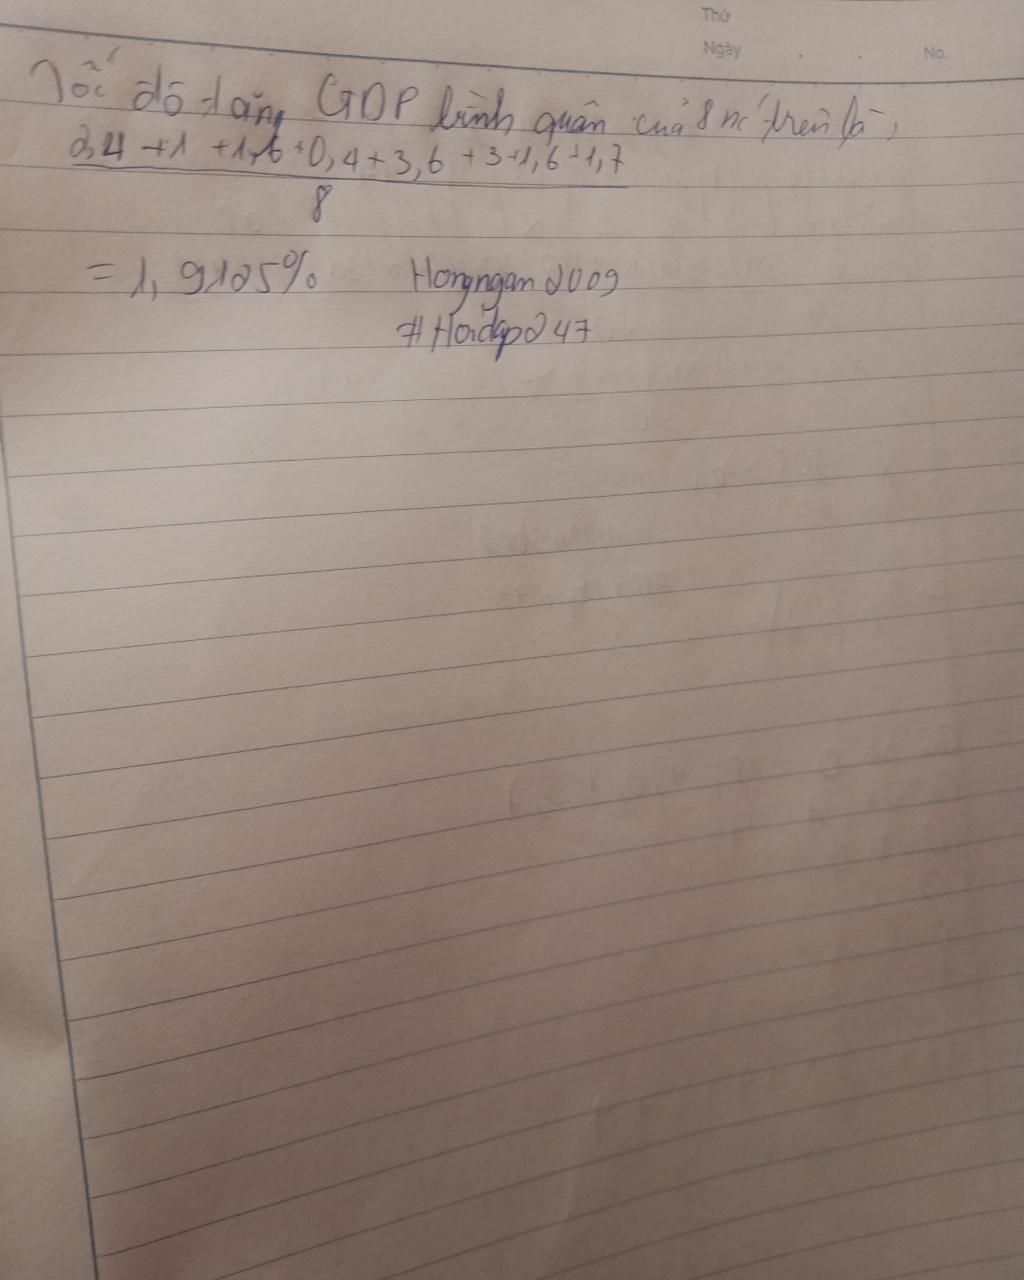 Thứ
Ngày . . No.
Tốc độ tăng GDP bình quân của 8 nc trên là,
2,4 +1 +1,6 +0,4 +3,6 +3 +1,6 +1,7
8
= 1,9125%
Hongngan2009
#Hoidap247